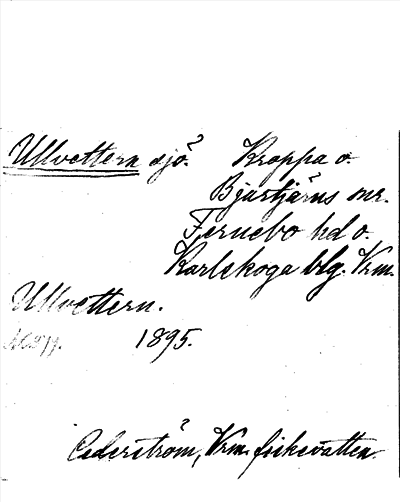 Ullvettern sjö. Kroppa o.
Bjurtjärns snr.
Fernebo hd o.
Karlskoga blg. Vrm.
Ullvettern.
1895.
Cederström, Vrm. fiskevatten.